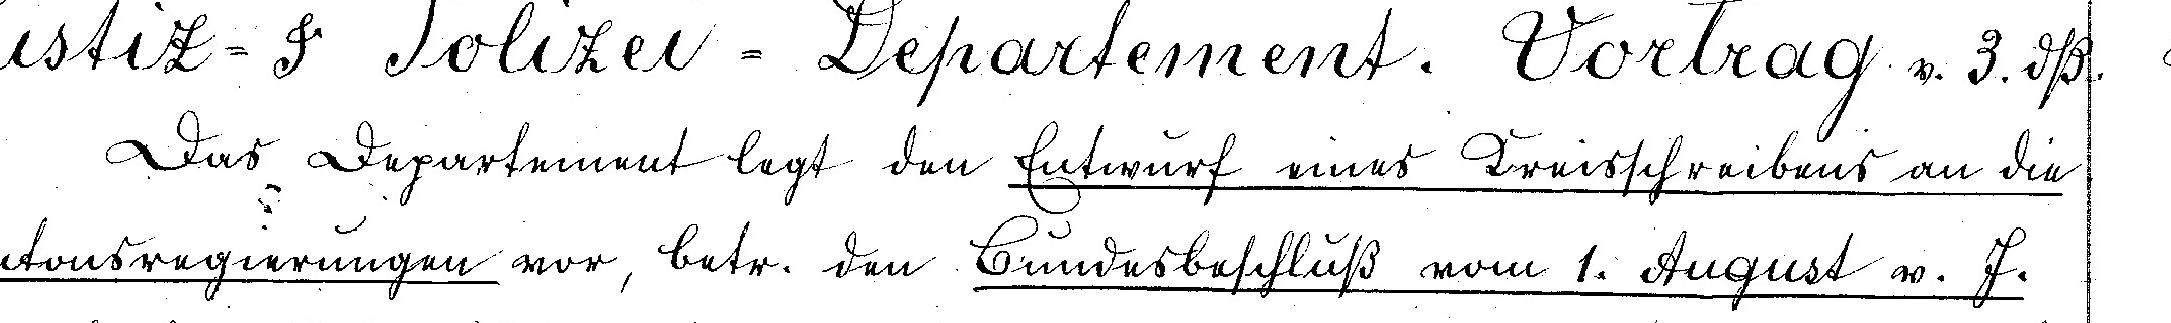 ustiz- & Polizei-Departement. Vortrag v. 3. dß.
Das Departement legt den Entwurf eines Kreisschreibens an die
ntonsregierungen vor, betr. den Bundesbeschluß vom 1. August v. J.